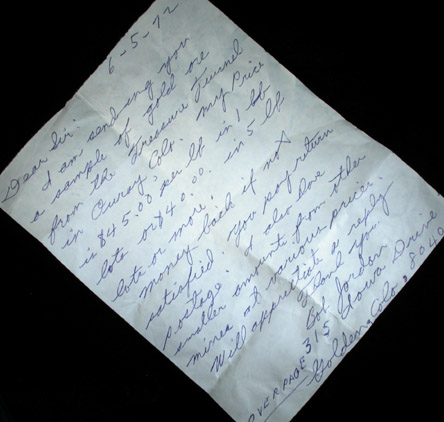 6-5-72
Dear Sir:
I am sending you
a sample of gold ore
from the Treasure Tunnel
in Ouray, Colo. my Price
is $45.00 per lb in 1 lb
lots or $40.00. in 5 lb
lots or more.
money back if not
satisfied. you pay return
postage. I also have
smaller amounts from other
mines at various prices.
Will appreciate a reply
Thank you.
Jordan
315 Iowa Drive
Golden, Colo. 8040
OVER PAGE